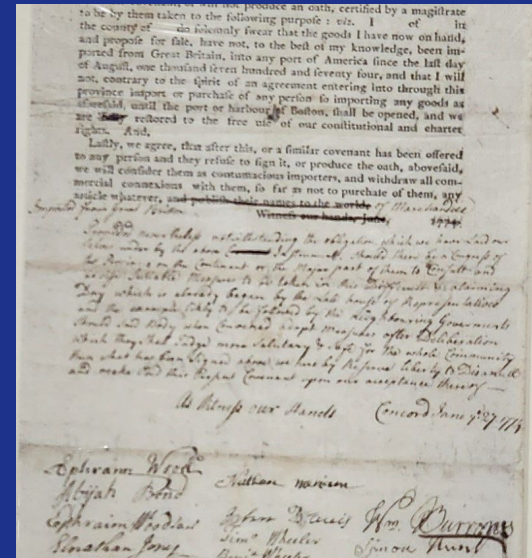 not produce an oath, certified by a magistrate
to be by them taken to the following purpose : viz. I of in
the county of do solemnly swear that the goods I have now on hand,
and propose for sale, have not, to the best of my knowledge, been im-
ported from Great Britain, into any port of America since the last day
of August, one thousand seven hundred and seventy four, and that I will
not, contrary to the spirit of an agreement entering into through this
province import or purchase of any person so importing any goods as
aforesaid, until the port or harbour of Boston, shall be opened, and we
are restored to the free use of our constitutional and charter
rights. And,
Lastly, we agree, that after this, or a similar covenant has been offered
to any person and they refuse to sign it, or produce the oath, abovesaid,
we will consider them as contumacious importers, and withdraw all com-
mercial connexions with them, so far as not to purchase of them, any
article whatever, and publish their names to the world, of Merchandize
Imported from Great Britain Witness our hands, June, 1774.
Provided nevertheless notwithstanding the obligation which we have Laid our
selves under by the above Instrument, Should there be a Congress of
the on the Continent or the Major part of them to Consult and
Measures to be taken in this Difficult & alarming
Day which is already begun by the Late house of Representatives
and the example likely to be followed by the Neighbouring Governments
Should Said Body when Convened adopt Measures after Deliberation
which they Shall Judge more Salutary & Safe for the whole Community
than what has been Signed above we here by Reserve liberty to Disannull
and make Void this Present Covenant upon our acceptance thereof
As Witness our Hands Concord June ye 27 1774
Ephraim Wood
Abijah Bond
Ephraim Wm. Burrows
Elnathan Jones Saml. Wheeler Simon Hunt